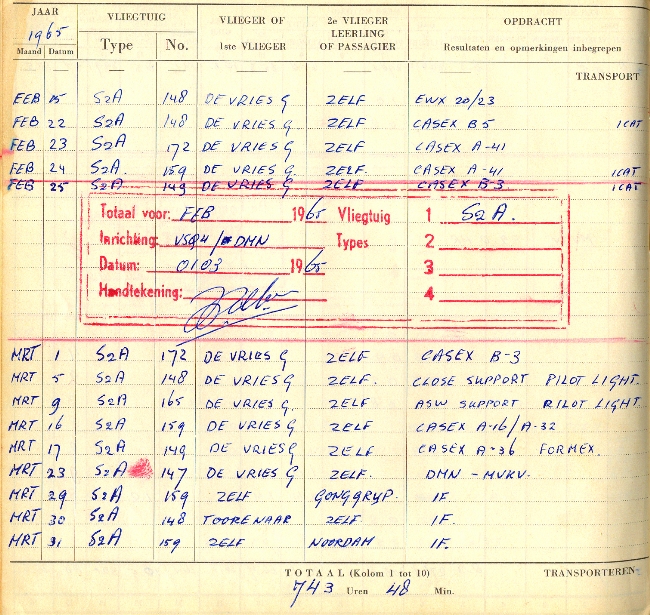 JAAR VLIEGTUIG VLIEGER OF 2e VLIEGER OPDRACHT
1965 LEERLING
Maand Datum Type No. 1ste VLIEGER OF PASSAGIER Resultaten en opmerkingen inbegrepen
TRANSPORT
FEB 15 S2A 148 DE VRIES G ZELF EWX 20/23
FEB 22 S2A 148 DE VRIES G ZELF CASEX B5 1CAT
FEB 23 S2A 172 DE VRIES G ZELF CASEX A-41
FEB 24 S2A. 159 DE VRIES G. ZELF. CASEX A-41 1CAT
FEB 25 S2A 149 DE VRIES G ZELF CASEX B-3 1CAT
Totaal voor: FEB 1965 Vliegtuig 1 S2A.
Inrichting: VSQ4/DMN Types 2
Datum: 01 03 1965 3
Handtekening: 4
MRT 1 S2A 172 DE VRIES G ZELF CASEX B-3
MRT 5 S2A 148 DE VRIES G ZELF. CLOSE SUPPORT PILOT LIGHT.
MRT 9 S2A 165 DE VRIES G ZELF ASW SUPPORT PILOT LIGHT.
MRT 16 S2A 159 DE VRIES G. ZELF CASEX A-16/A-32
MRT 17 S2A 149 DE VRIES G ZELF CASEX A-36 FORMEX.
MRT 23 S2A 147 DE VRIES G ZELF. DMN - MVKV.
MRT 29 S2A 159 ZELF GONGGRYP. IF.
MRT 30 S2A 148 TOORENAAR ZELF. IF.
MRT 31 S2A 159 ZELF NOORDAM IF.
TOTAAL (Kolom 1 tot 10) TRANSPORTEREN
743 Uren 48 Min.